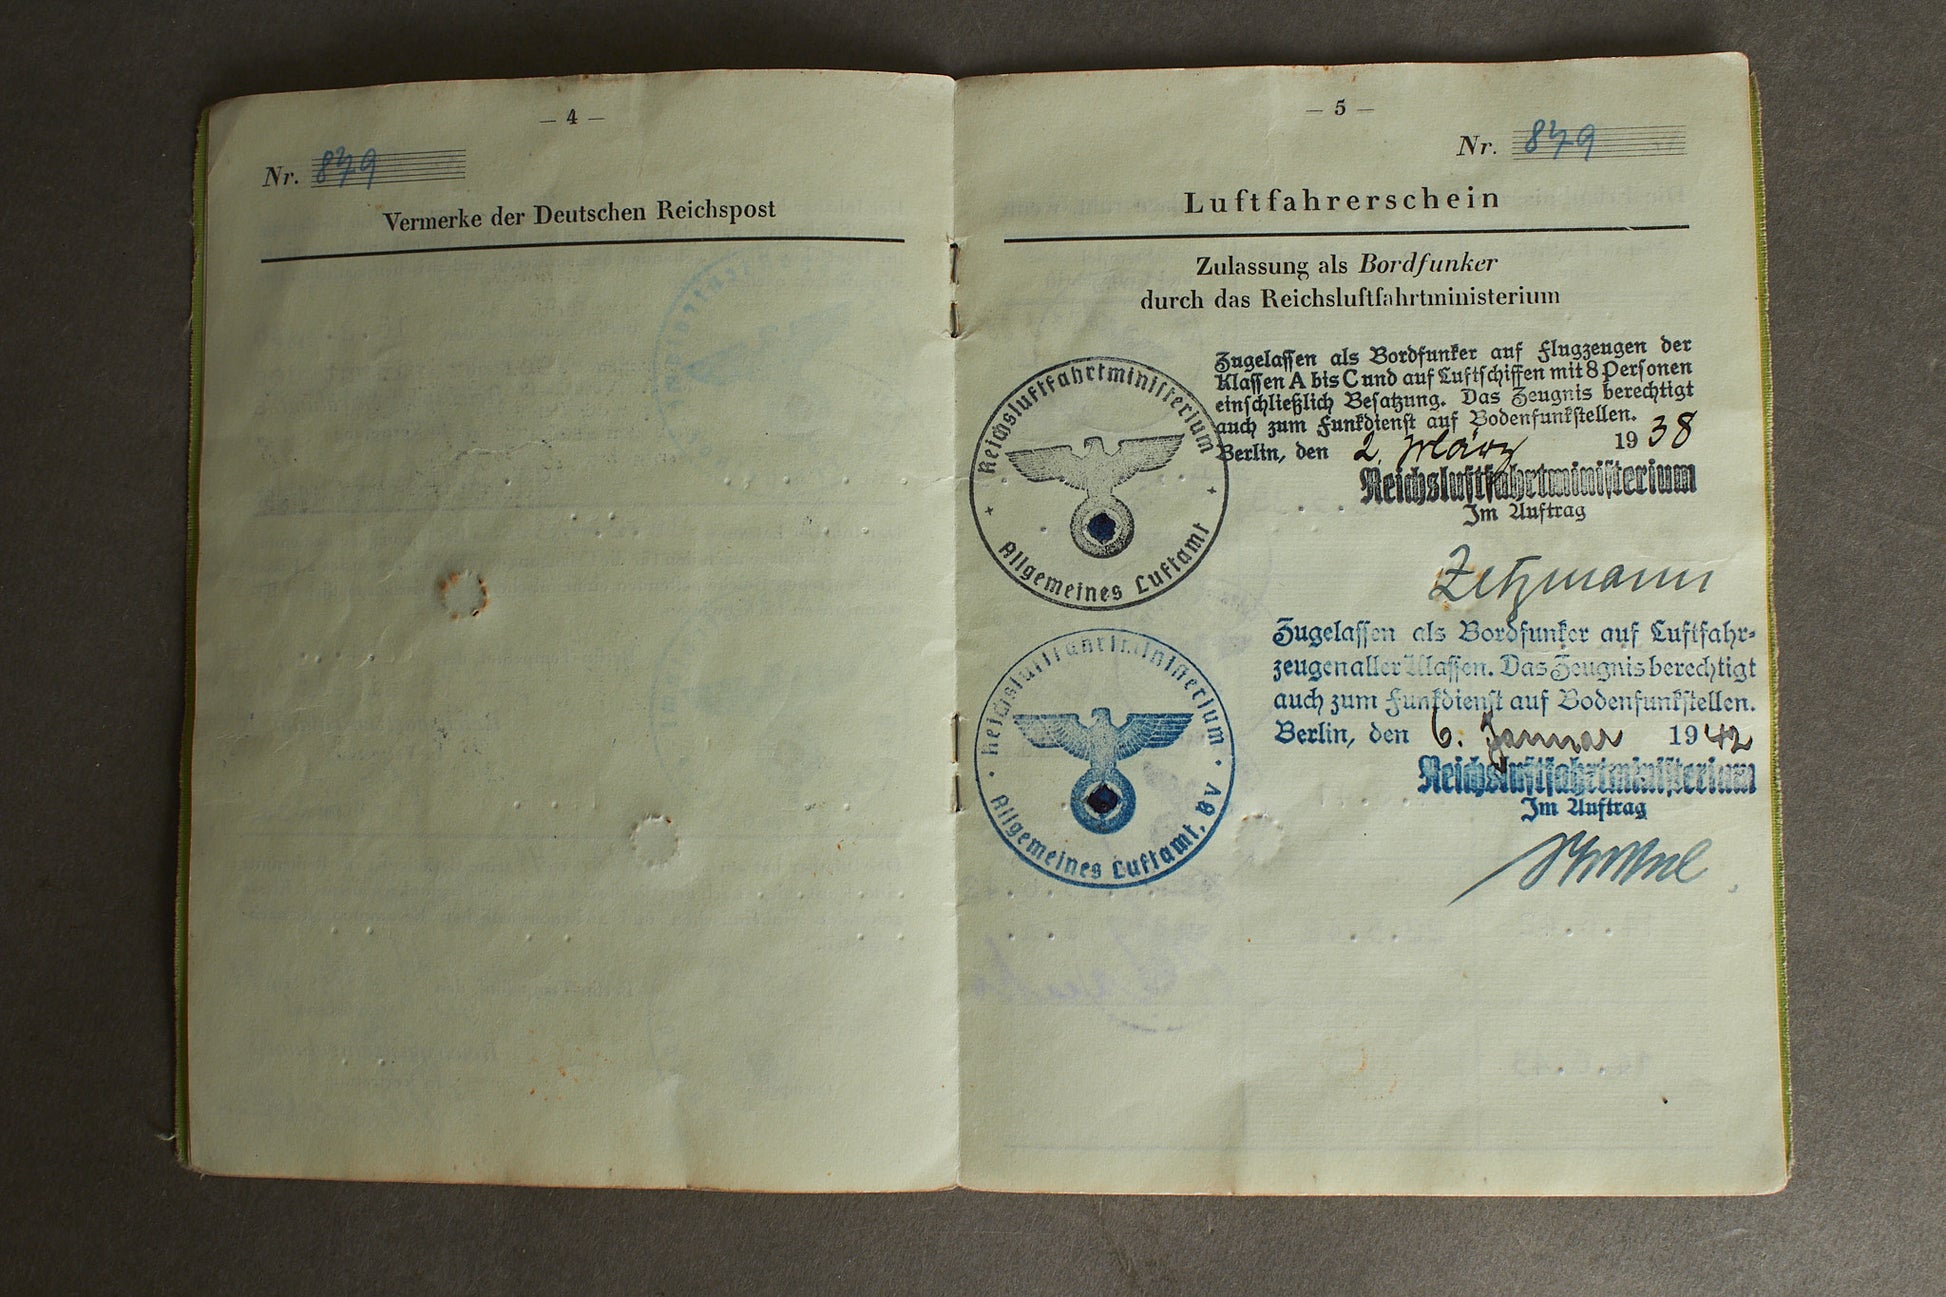 — 4 —
Nr. 879
Vermerke der Deutschen Reichspost
— 5 —
Nr. 879
Luftfahrerschein
Zulassung als Bordfunker
durch das Reichsluftfahrtministerium
Zugelassen als Bordfunker auf Flugzeugen der
Klassen A bis C und auf Luftschiffen mit 8 Personen
einschließlich Besatzung. Das Zeugnis berechtigt
auch zum Funkdienst auf Bodenfunkstellen.
Berlin, den 2. März 1938
Reichsluftfahrtministerium
Im Auftrag
Zetzmann
Reichsluftfahrtministerium
Allgemeines Luftamt
Zugelassen als Bordfunker auf Luftfahr-
zeugen aller Klassen. Das Zeugnis berechtigt
auch zum Funkdienst auf Bodenfunkstellen.
Berlin, den 6. Januar 1942
Reichsluftfahrtministerium
Im Auftrag
Reichsluftfahrtministerium
Allgemeines Luftamt, BV